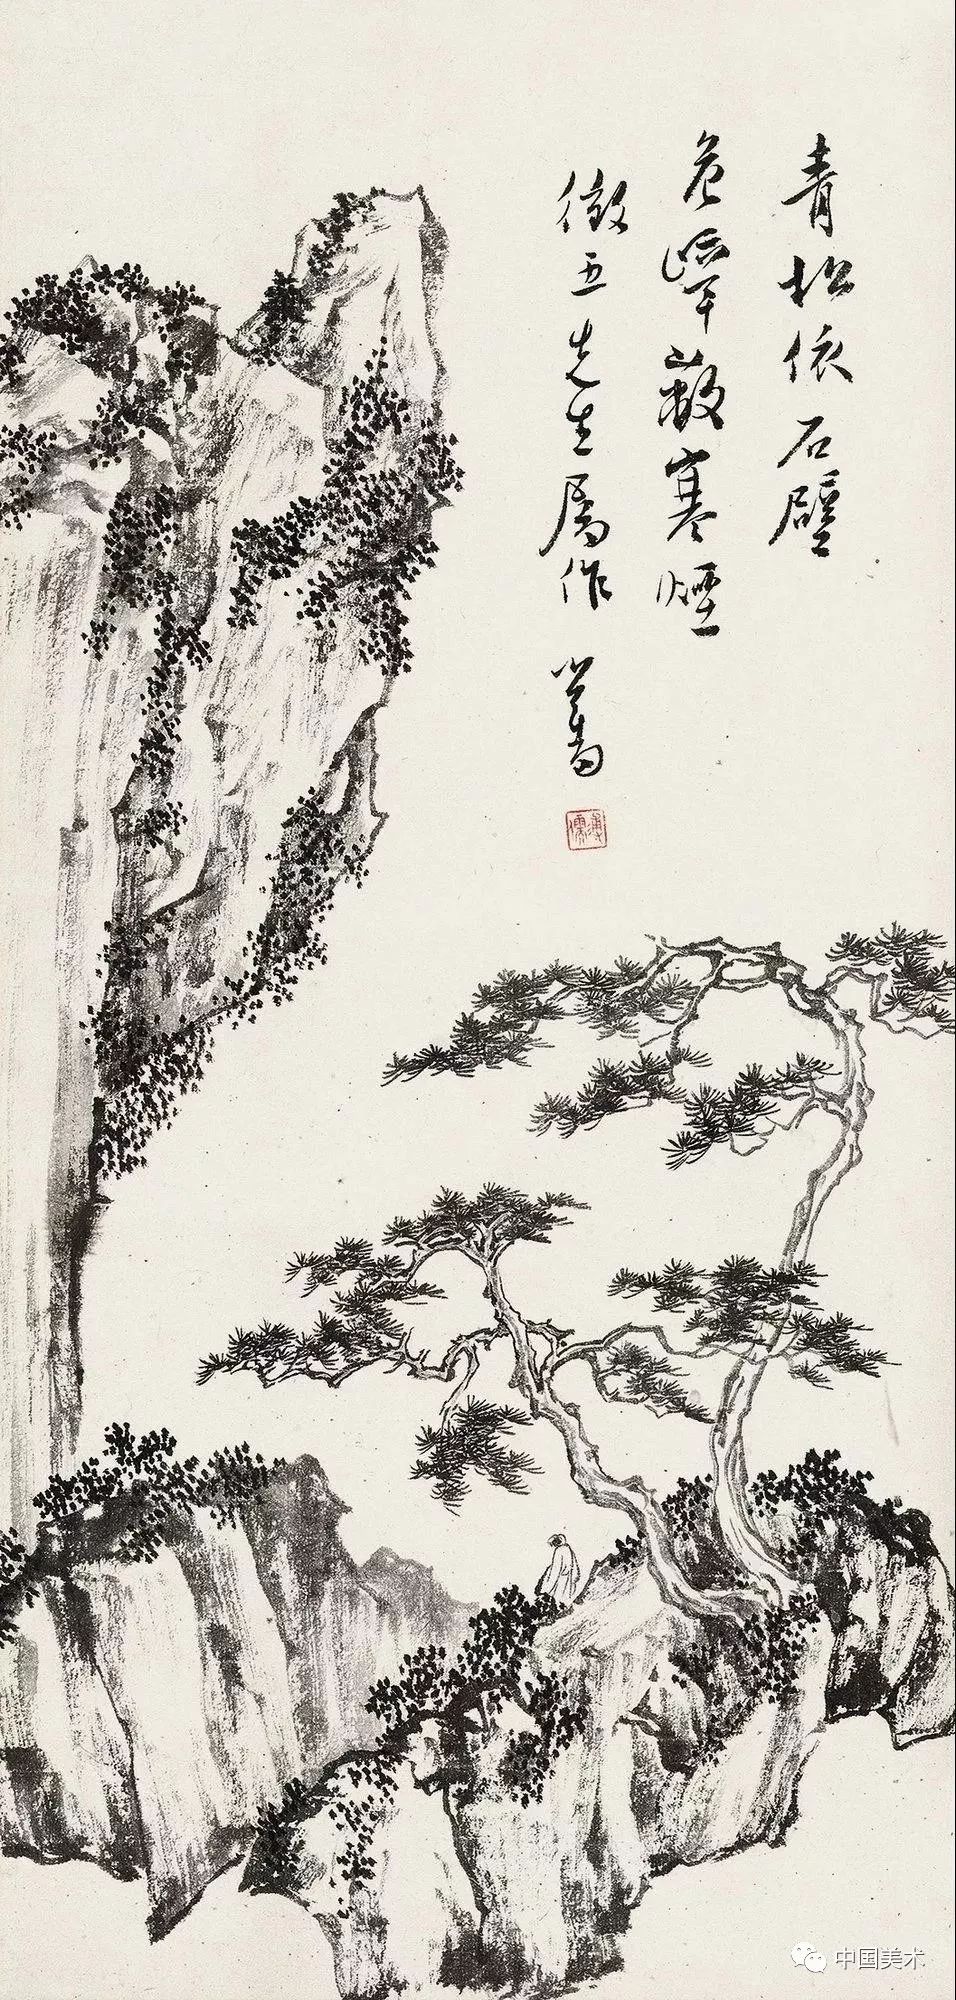 青松依石壁
危嶂蔽寒煙
徵五先生属作 心畬
溥儒
中国美术